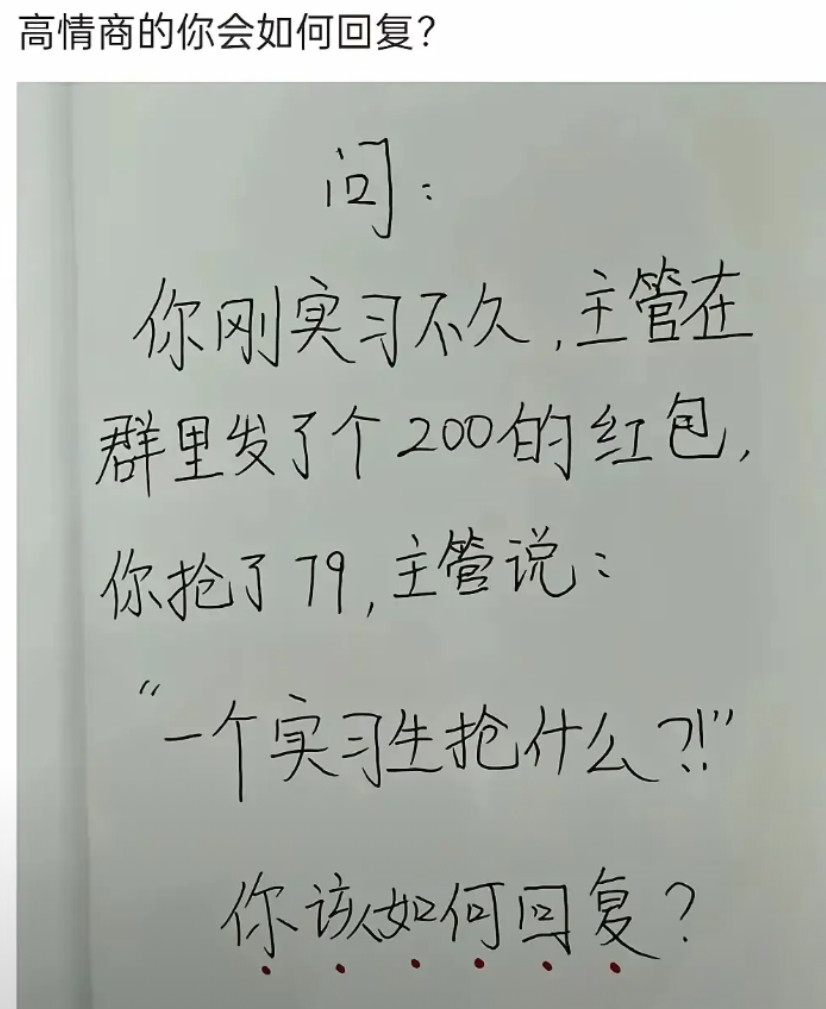 高情商的你会如何回复？
问：
你刚实习不久，主管在
群里发了个200的红包，
你抢了79，主管说：
“一个实习生抢什么?!”
你该如何回复？